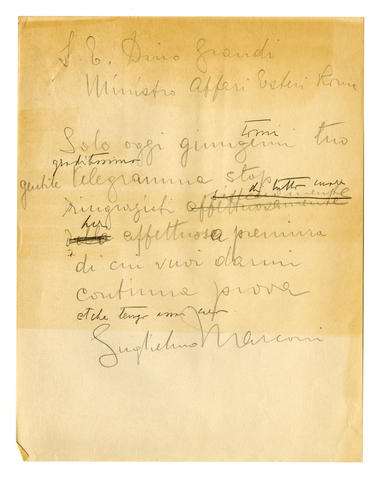 S. E. Dino Grandi
Ministro Affari Esteri Roma
Solo oggi giungemi tuo
gratitissimo
gentile telegramma stop
di tutto cuore
ringrazioti affettuosamente
tua affettuosa premura
di cui vuoi darmi
continua prova
et che tengo
Guglielmo Marconi